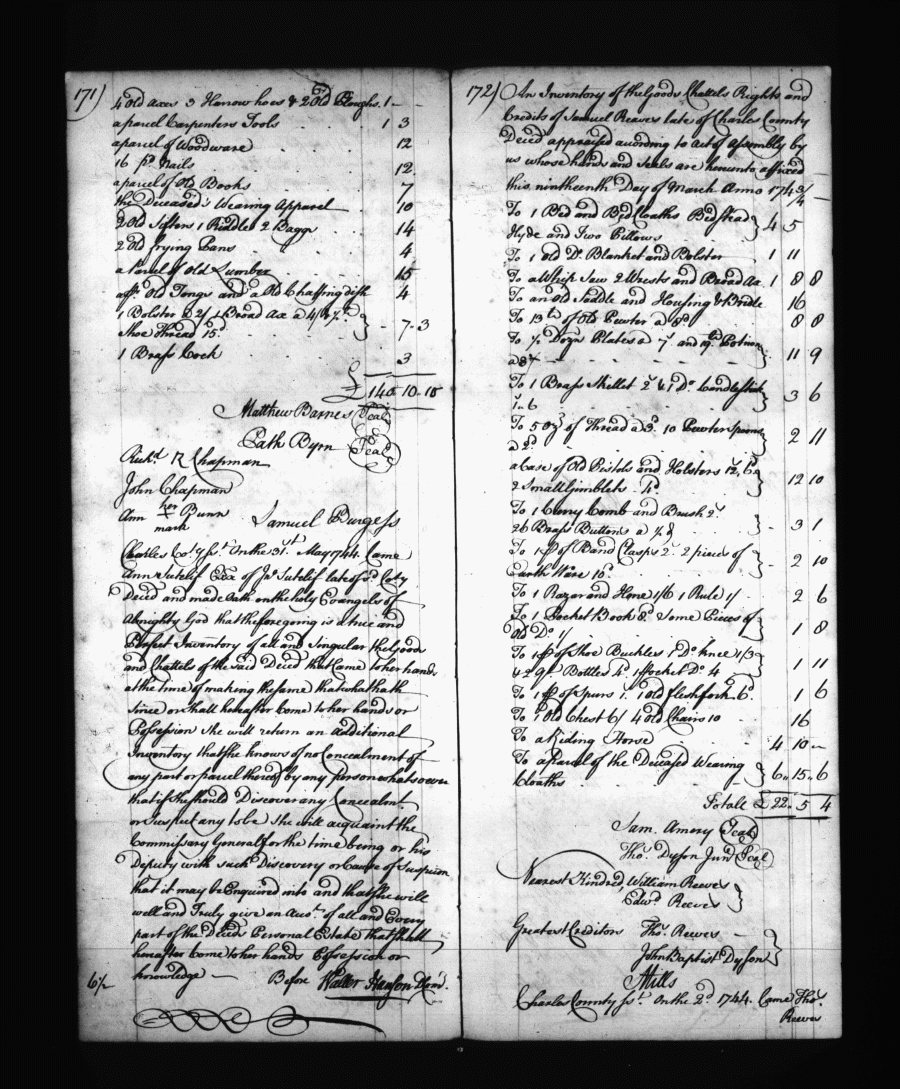 171)
4 Old Axes 3 Harrow hoes & 2 Old Ploughs. 1 —
a parcel Carpenters Tools 1 3
a parcel of Woodware 12
16 pd. Nails 12
a parcel of Old Books 7
the Deceased's Wearing Apparel 10
2 Old Sifters 1 Riddle 2 Baggs 14
2 Old frying Pans 4
a Parcel of Old Lumber 15
Old Tongs and a Old Chaffing dish 4
1 Bolster 2/ 1 Broad Axe a 4/
Shoe Thread 15d. } - 7 - 3
1 Brass Cock 3
£ 140 - 10 - 10
Matthew Barnes Seal
Path Byrn Seal
Richd. R Chapman
John Chapman
Ann her + mark Bunn Samuel Burgess
Charles Coty. Sst. On the 31st. May 1744. Came
Ann Sutclif Exx of Jno. Sutclif late of sd. Coty
Deced and made Oath on the holy Evangels of
Almighty God that the foregoing is a true and
Perfect Inventory of all and Singular the Goods
and Chattels of the said Deced that Came to her hands
at the time of making the same that what hath
since or shall hereafter Come to her hands or
Possession she will return an Additional
Inventory that she knows of no Concealment of
any part or parcel thereof by any person whatsoever
that if she should Discover any Concealmt.
or Suspect any to be She will acquaint the
Commissary General for the time being or his
Deputy with such Discovery or Cause of Suspicion
that it may be Enquired into and that she will
well and Truly give an Acct. of all and Every
part of the Deceds Personal Estate that shall
hereafter Come to her hands Possession or
knowledge — Before Walter Hanson
172)
An Inventory of the Goods Chattels Rights and
Credits of Samuel Reeves late of Charles County
Deced appraised according to Act of Assembly by
us whose hands and Seals are hereunto affixed
this ninthteenth Day of March Anno 1743/4 —
To 1 Bed and Bed Cloaths Bedstead
Hyde and Two Pillows } 4 5
To 1 Old Do. Blanket and Bolster 1 11
To a Whip Saw 2 Wrests and Broad Ax 1 8 8
To an Old Saddle and Housing & Bridle 16
To 13 lb of Old Pewter a 8d. 8 8
To ½ Dozn Plates a 7/ and
} 11 9
To 1 Brass Skillet 2/ & 1 Do. Candlestick
1..6 } 3 6
To 5 oz. of Thread a 3d. 10 Pewter Spoons
a 2d. } 2 11
a Case of Old Pistols and Holsters 12..6
2 Small Gimblets 4d. } 12 10
To 1 Curry Comb and Brush 2/
26 Brass Buttons a ½d } - 3 1
To 1 pr of Band Clasps 2/. 2 pieces of
Earth Ware 10d. } - 2 10
To 1 Razor and Hone 1/6 1 Rule 1/ 2 6
To 1 Pocket Book 8d. Some Pieces of
Old Do. 1/ } 1 8
To 1 pr of Shoe Buckles 1 Do. Knee 1/3
4 2 qt. Bottles 4d. 1 pocket Do. 4 } 1 11
To 1 pr of Spurs 1/. 1 Old fleshfork 6d. 1 6
To 1 Old Chest 6/ 4 Old Chairs 10 16
To a Riding Horse 4 10 —
To a Parcel of the Deceased Wearing
Cloaths } 6 .. 15 .. 6
Totall £ 22 .. 5 4
Sam. Amery Seal
Tho. Dyson Junr Seal
Nearest Kindred, William Reeves
Edwd. Reeves }
Greatest Creditors Tho. Reeves —
John Baptist Dyson }
Mills
Charles County Sst. On the 2d. 1744. Came Tho.
Reeves